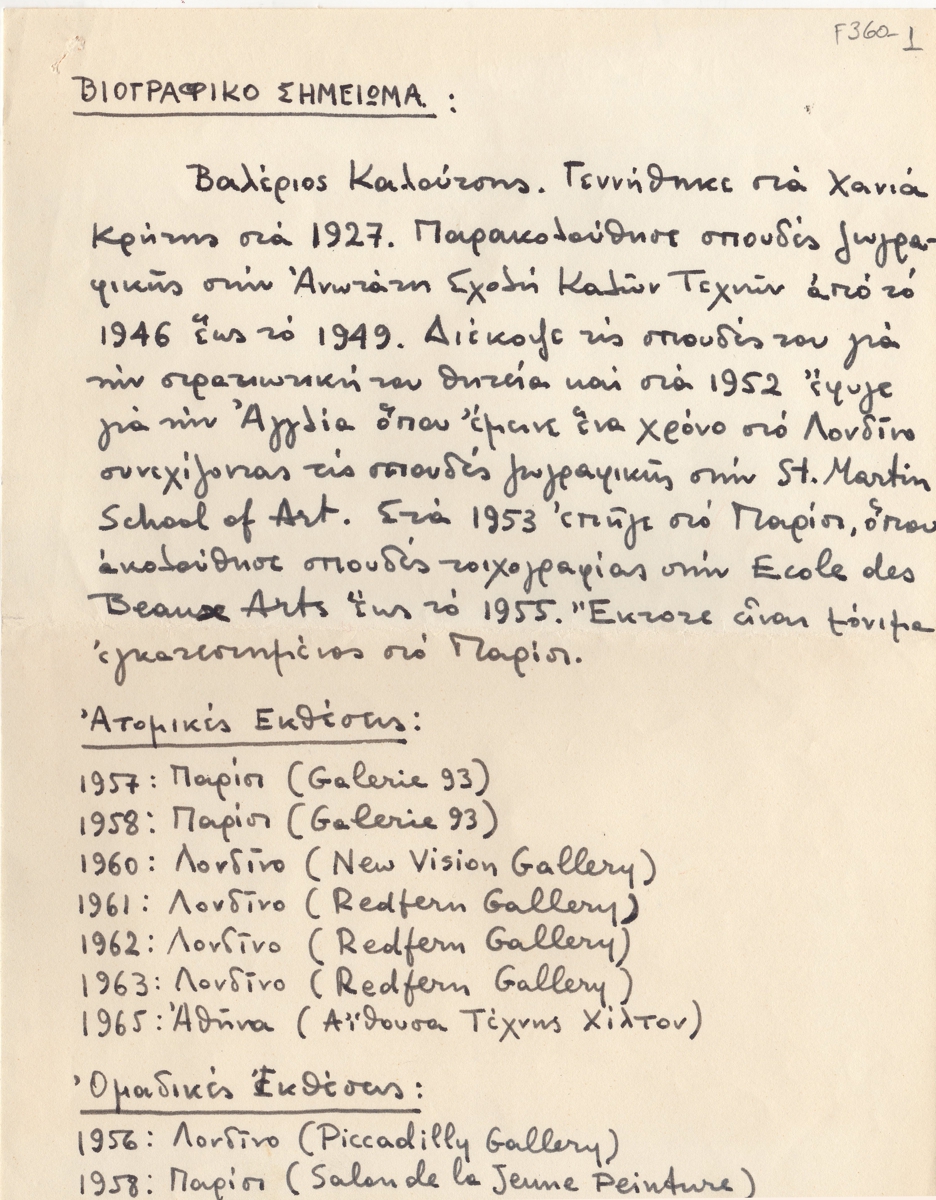 F360-1
ΒΙΟΓΡΑΦΙΚΟ ΣΗΜΕΙΩΜΑ :
Βαλέριος Καλούτσης. Γεννήθηκε στά Χανιά
Κρήτης στά 1927. Παρακολούθησε σπουδές ζωγρα-
φικῆς στήν Ἀνωτάτη Σχολή Καλῶν Τεχνῶν ἀπό τό
1946 ἕως τό 1949. Διέκοψε τίς σπουδές του γιά
τήν στρατιωτική του θητεία καί στά 1952 ἔφυγε
γιά τήν Ἀγγλία ὅπου ἔμεινε ἕνα χρόνο στό Λονδῖνο
συνεχίζοντας τίς σπουδές ζωγραφικῆς στήν St. Martin
School of Art. Στά 1953 ἐπῆγε στό Παρίσι, ὅπου
ἀκολούθησε σπουδές τοιχογραφίας στήν Ecole des
Beaux Arts ἕως τό 1955. Ἔκτοτε εἶναι μόνιμα
ἐγκατεστημένος στό Παρίσι.
Ἀτομικές Εκθέσεις:
1957: Παρίσι (Galerie 93)
1958: Παρίσι (Galerie 93)
1960: Λονδῖνο (New Vision Gallery)
1961: Λονδῖνο (Redfern Gallery)
1962: Λονδῖνο (Redfern Gallery)
1963: Λονδῖνο (Redfern Gallery)
1965: Ἀθήνα (Αἴθουσα Τέχνης Χίλτον)
Ὁμαδικές Ἐκθέσεις:
1956: Λονδῖνο (Piccadilly Gallery)
1958: Παρίσι (Salon de la Jeune Peinture)